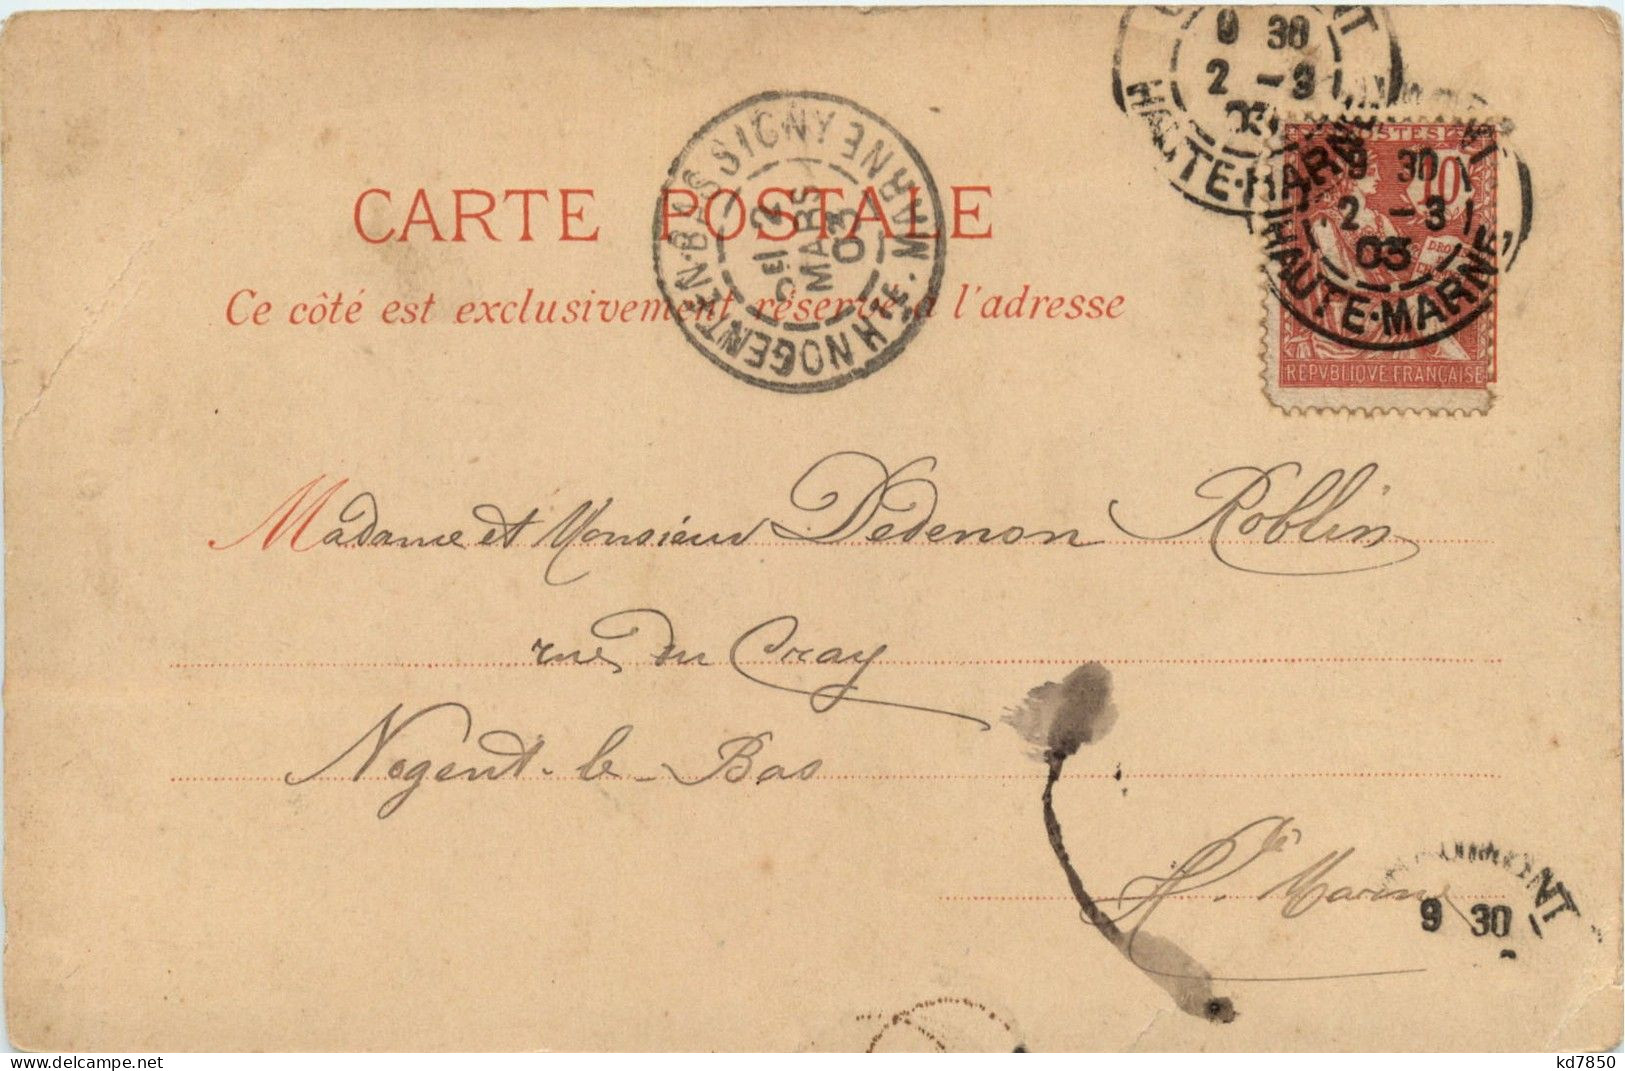 9 30
2 - 3
03
HAUTE-MARNE
POSTES
10
9 30
2 - 3
03
HAUTE-MARNE
REPVBLIQVE FRANÇAISE
NOGENT EN BASSIGNY
2
MARS
03
HTE MARNE
CARTE POSTALE
Ce côté est exclusivement réservé à l'adresse
Madame et Monsieur Dedenon Roblin
rue du Cray
Nogent-le-Bas
Hte Marne
9 30
delcampe.net
kd7850